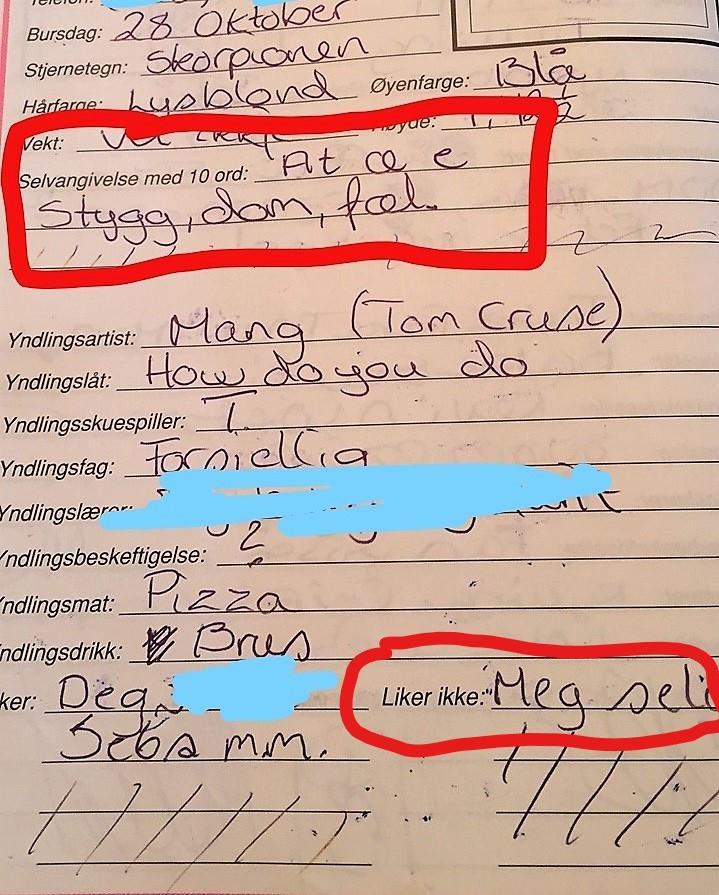 Telefon:
Bursdag: 28 Oktober
Stjernetegn: Skorpionen
Hårfarge: Lysblond Øyenfarge: Blå
Vekt: Vet ikke Høyde:
Selvangivelse med 10 ord: At æ e
stygg, dom, fæl.
Yndlingsartist: Mang (Tom Cruse)
Yndlingslåt: How do you do
Yndlingsskuespiller: T.
Yndlingsfag: Forsjellig
Yndlingslærer:
Yndlingsbeskeftigelse: ?
Yndlingsmat: Pizza
Yndlingsdrikk: Brus
ker: Deg, Liker ikke: Meg selv
mm.